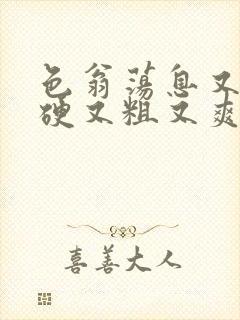 色翁荡息又
硬又粗又爽
喜善大人